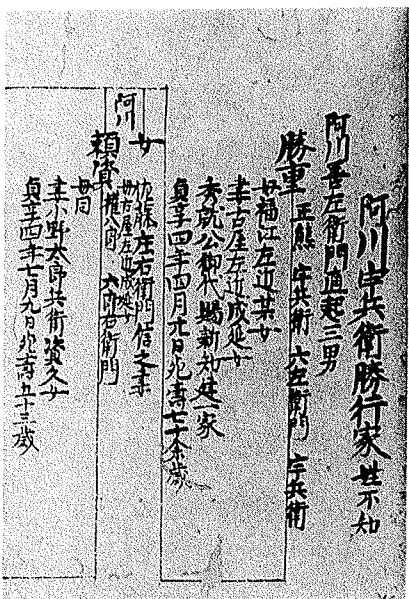 阿川宇兵衛勝行家 姓不知
阿川吾左衛門直起三男
勝重 正熊 宇兵衛 六左衛門 宇兵衛
母福江左近某女
妻古屋左近成延女
秀就公御代賜新知建一家
貞享四年四月廿日死壽七十余歳
女 佐藤庄右衛門信之妻
母古屋左近成延女
阿川
頼實 権八 六郎右衛門
母同
妻小野太郎兵衛資久女
貞享四年七月九日死壽五十三歳